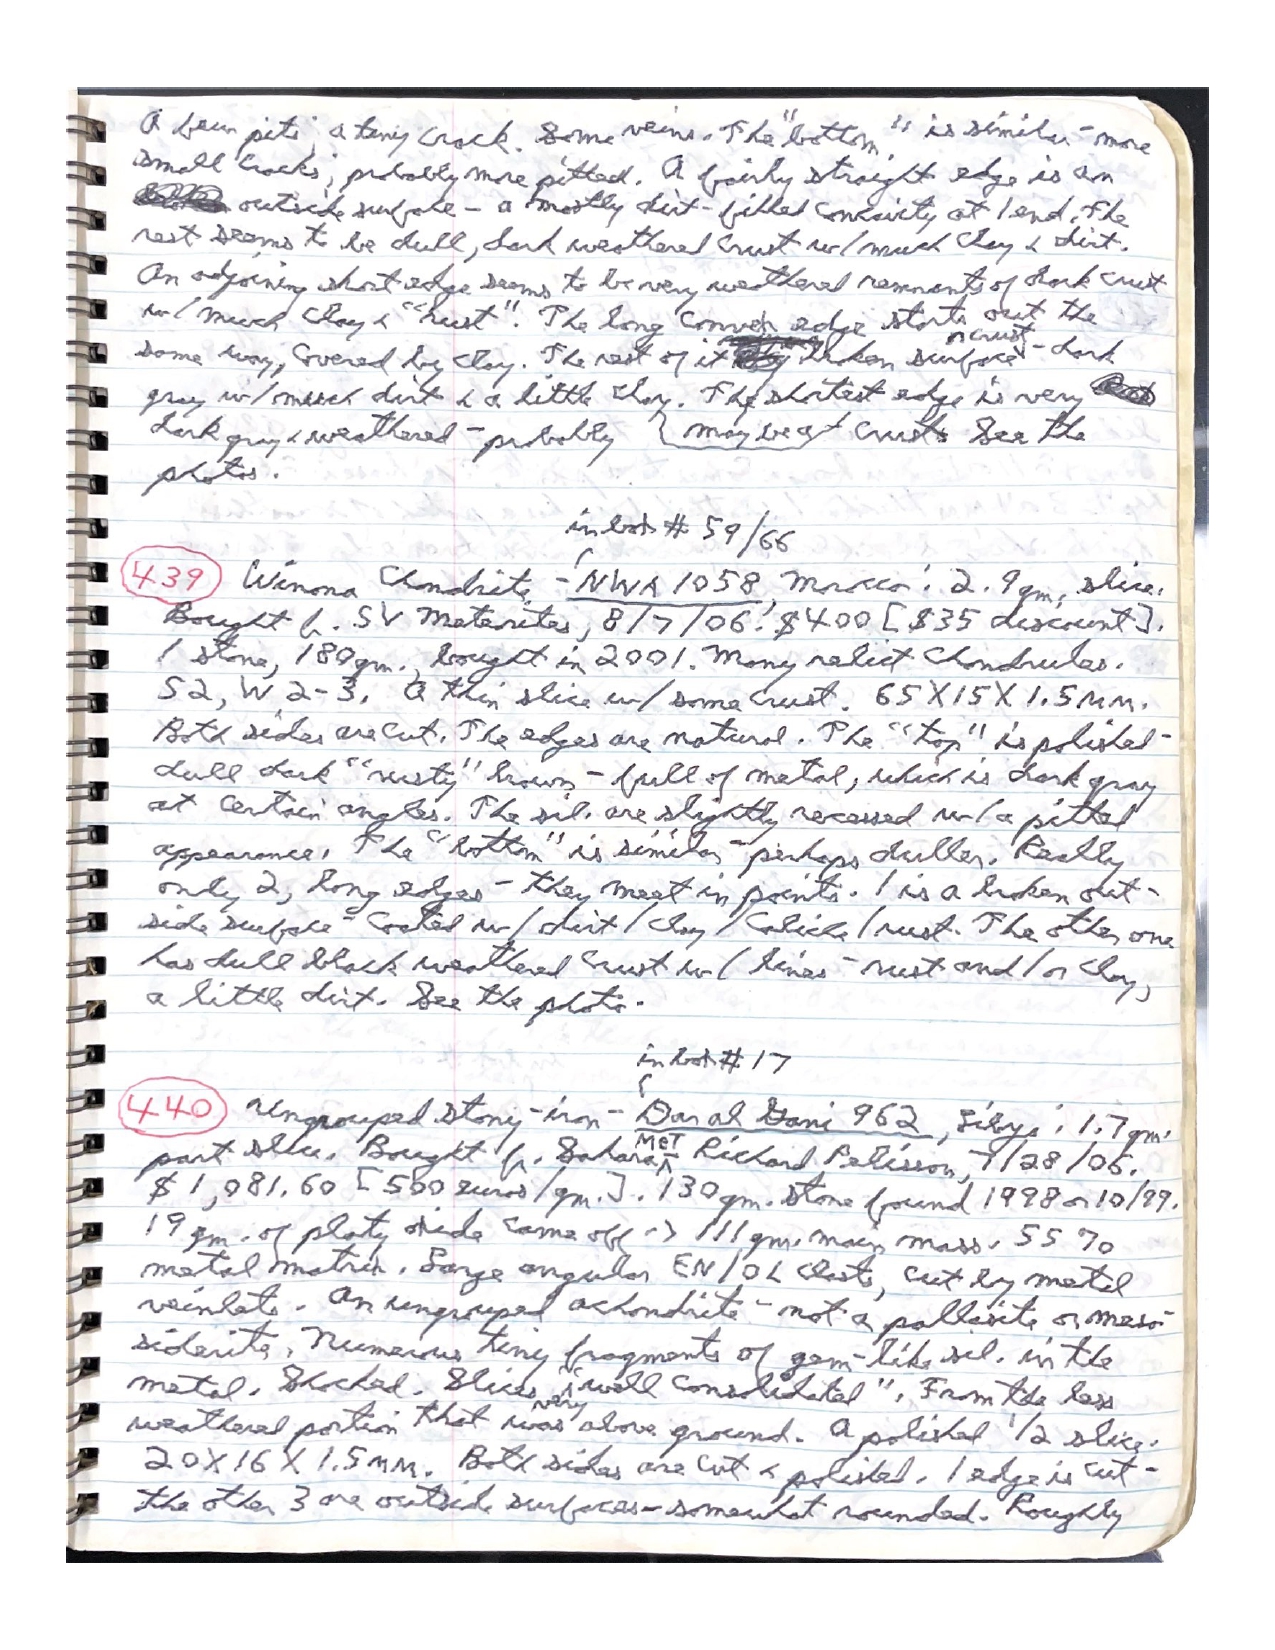 A few pits, a tiny crack. Some veins. The "bottom" is similar - more
small cracks; probably more pitted. A fairly straight edge is an
outside surface - a mostly dirt-filled concavity at 1 end. The
rest seems to be dull, dark weathered crust w/ much clay & dirt.
An adjoining short edge seems to be very weathered remnants of dark crust
w/ much clay & "rust". The long convex edge starts out the
same way, covered by clay. The rest of it broken surface or crust - dark
gray w/ much dirt & a little clay. The shortest edge is very
dark gray & weathered - probably { may be a crust. See the
photos.
in bot. # 59/66
439 Winona Chondrite - NWA 1058, Morocco: 2.9gm. slice.
Bought f. SV Meteorites, 8/7/06: $400 [$35 discount].
1 stone, 180gm., bought in 2001. Many relict chondrules.
S2, W2-3. A thin slice w/ some crust. 65X15X1.5MM.
Both sides are cut. The edges are natural. The "top" is polished -
dull dark "rusty" brown - full of metal, which is dark gray
at certain angles. The sil. are slightly recessed w/ a pitted
appearance. The "bottom" is similar - perhaps duller. Really
only 2, long edges - they meet in points. 1 is a broken out-
side surface - coated w/ dirt/clay/caliche/rust. The other one
has dull black weathered crust w/ lines - rust and/or clay,
a little dirt. See the photo.
in bot. # 17
440 Ungrouped stony-iron - Dar al Gani 962, Libya: 1.7gm.
part slice. Bought f. SaharaMET Richard Pelisson, 7/28/06.
$1,081.60 [500 euros/gm.]. 130gm. stone found 1998 or 10/99.
19gm. of platy oxide came off -> 111gm. main mass. 55%
metal matrix. Large angular EN/OL clasts, cut by metal
veinlets. An ungrouped achondrite - not a pallasite or meso-
siderite. Numerous tiny fragments of gem-like sil. in the
metal. Shocked. Slices "very well consolidated". From the less
weathered portion that was above ground. A polished 1/2 slice.
20X16X1.5MM. Both sides are cut & polished. 1 edge is cut -
the other 3 are outside surfaces - somewhat rounded. Roughly